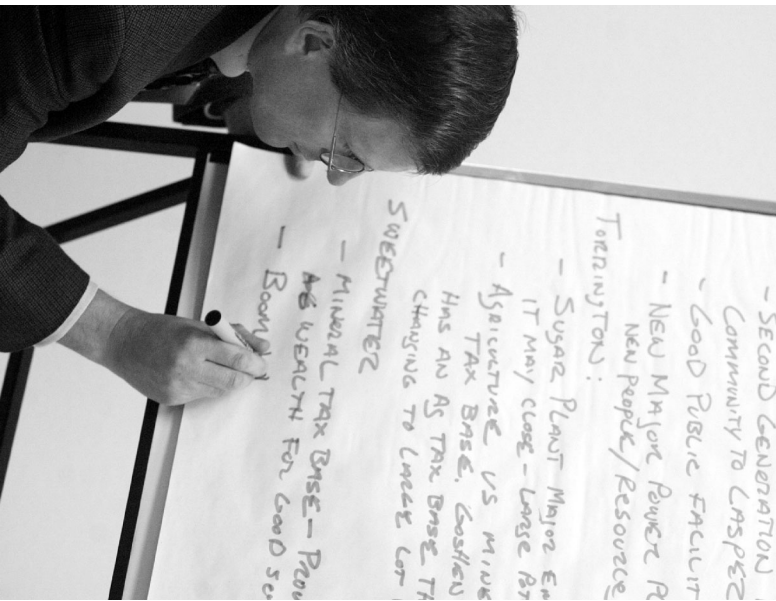 - SECOND GENERATION
COMMUNITY TO CASPER
- GOOD PUBLIC FACILIT
- NEW MAJOR POWER P
NEW PEOPLE/RESOURCE
TORRINGTON:
- SUGAR PLANT MAJOR EM
IT MAY CLOSE - LARGE POT
- AGRICULTURE VS MINE
TAX BASE. GOSHEN
HAS AN AG TAX BASE TH
CHANGING TO LARGE LOT
SWEETWATER
- MINERAL TAX BASE - PROV
WEALTH FOR GOOD SER
- BOOM